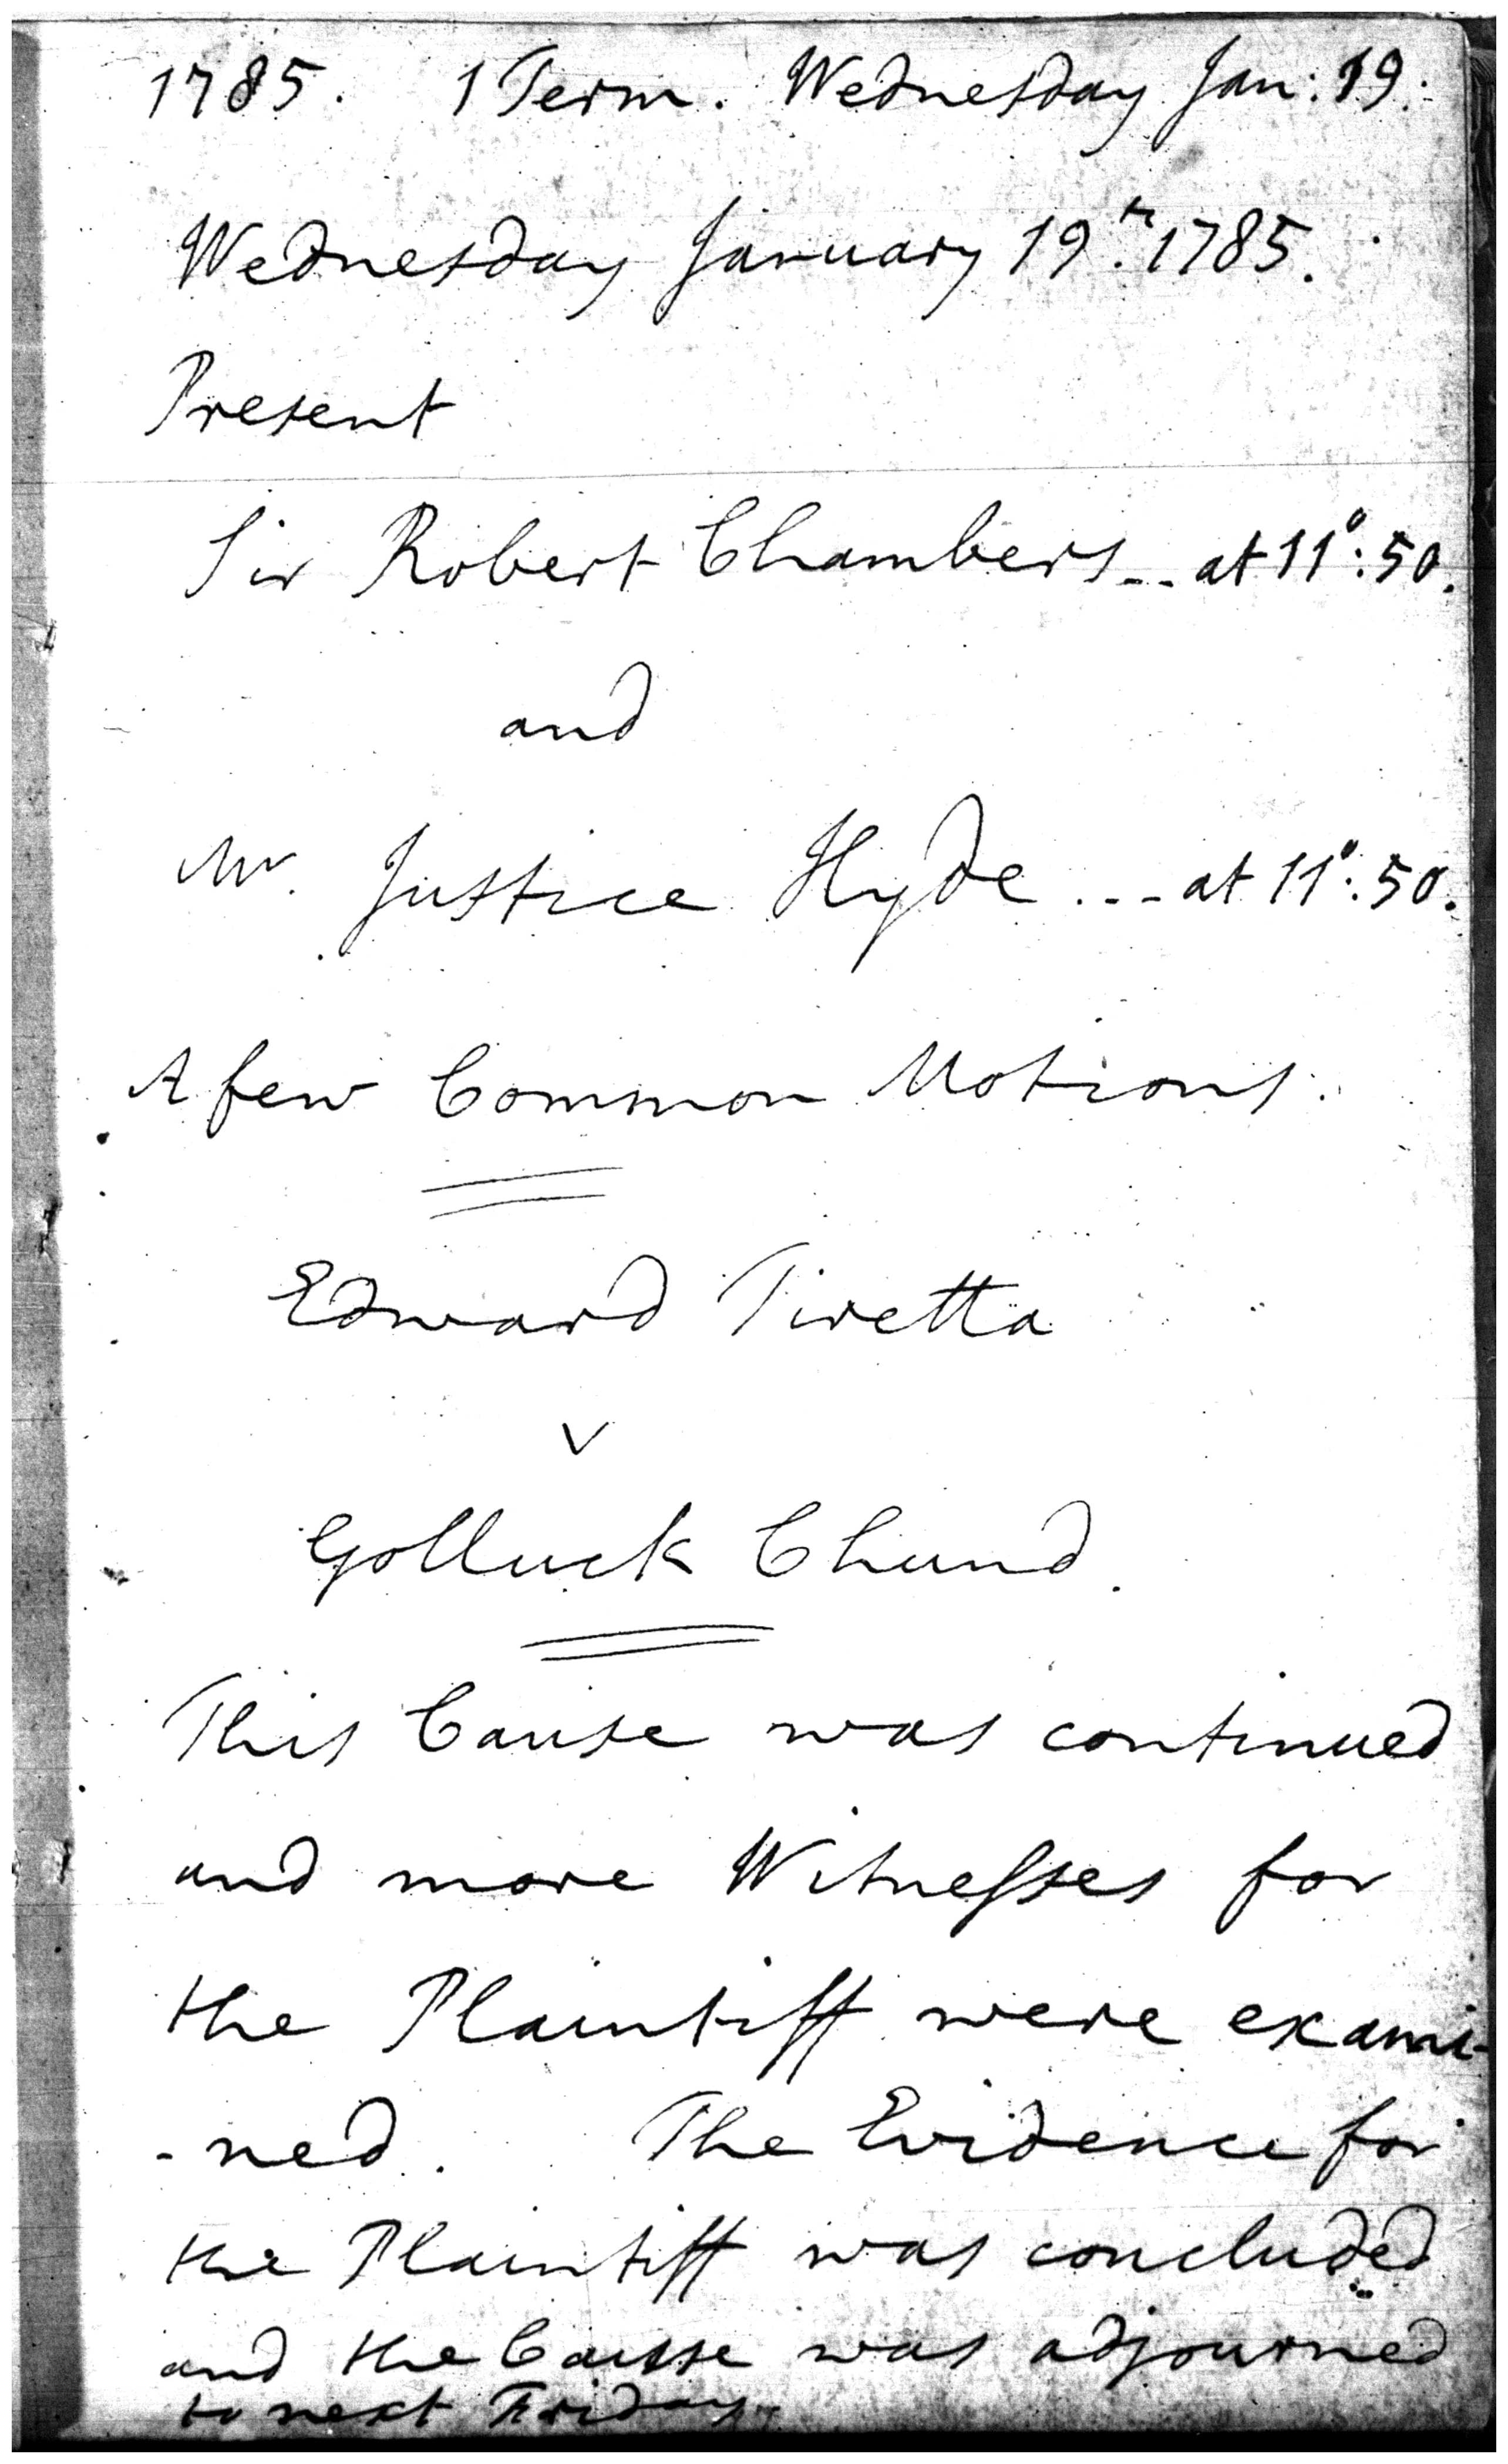 1785. 1 Term. Wednesday Jan: 19.
Wednesday January 19th. 1785.
Present
Sir Robert Chambers -- at 11°: 50.
and
Mr. Justice Hyde ... - at 11°: 50.
A few Common Motions.
Edward Tiretta
v
Golluck Chund.
This Cause was continued
and more Witnesses for
the Plaintiff were exami-
-ned. The Evidence for
the Plaintiff was concluded
and the Cause was adjourned
to next Friday.